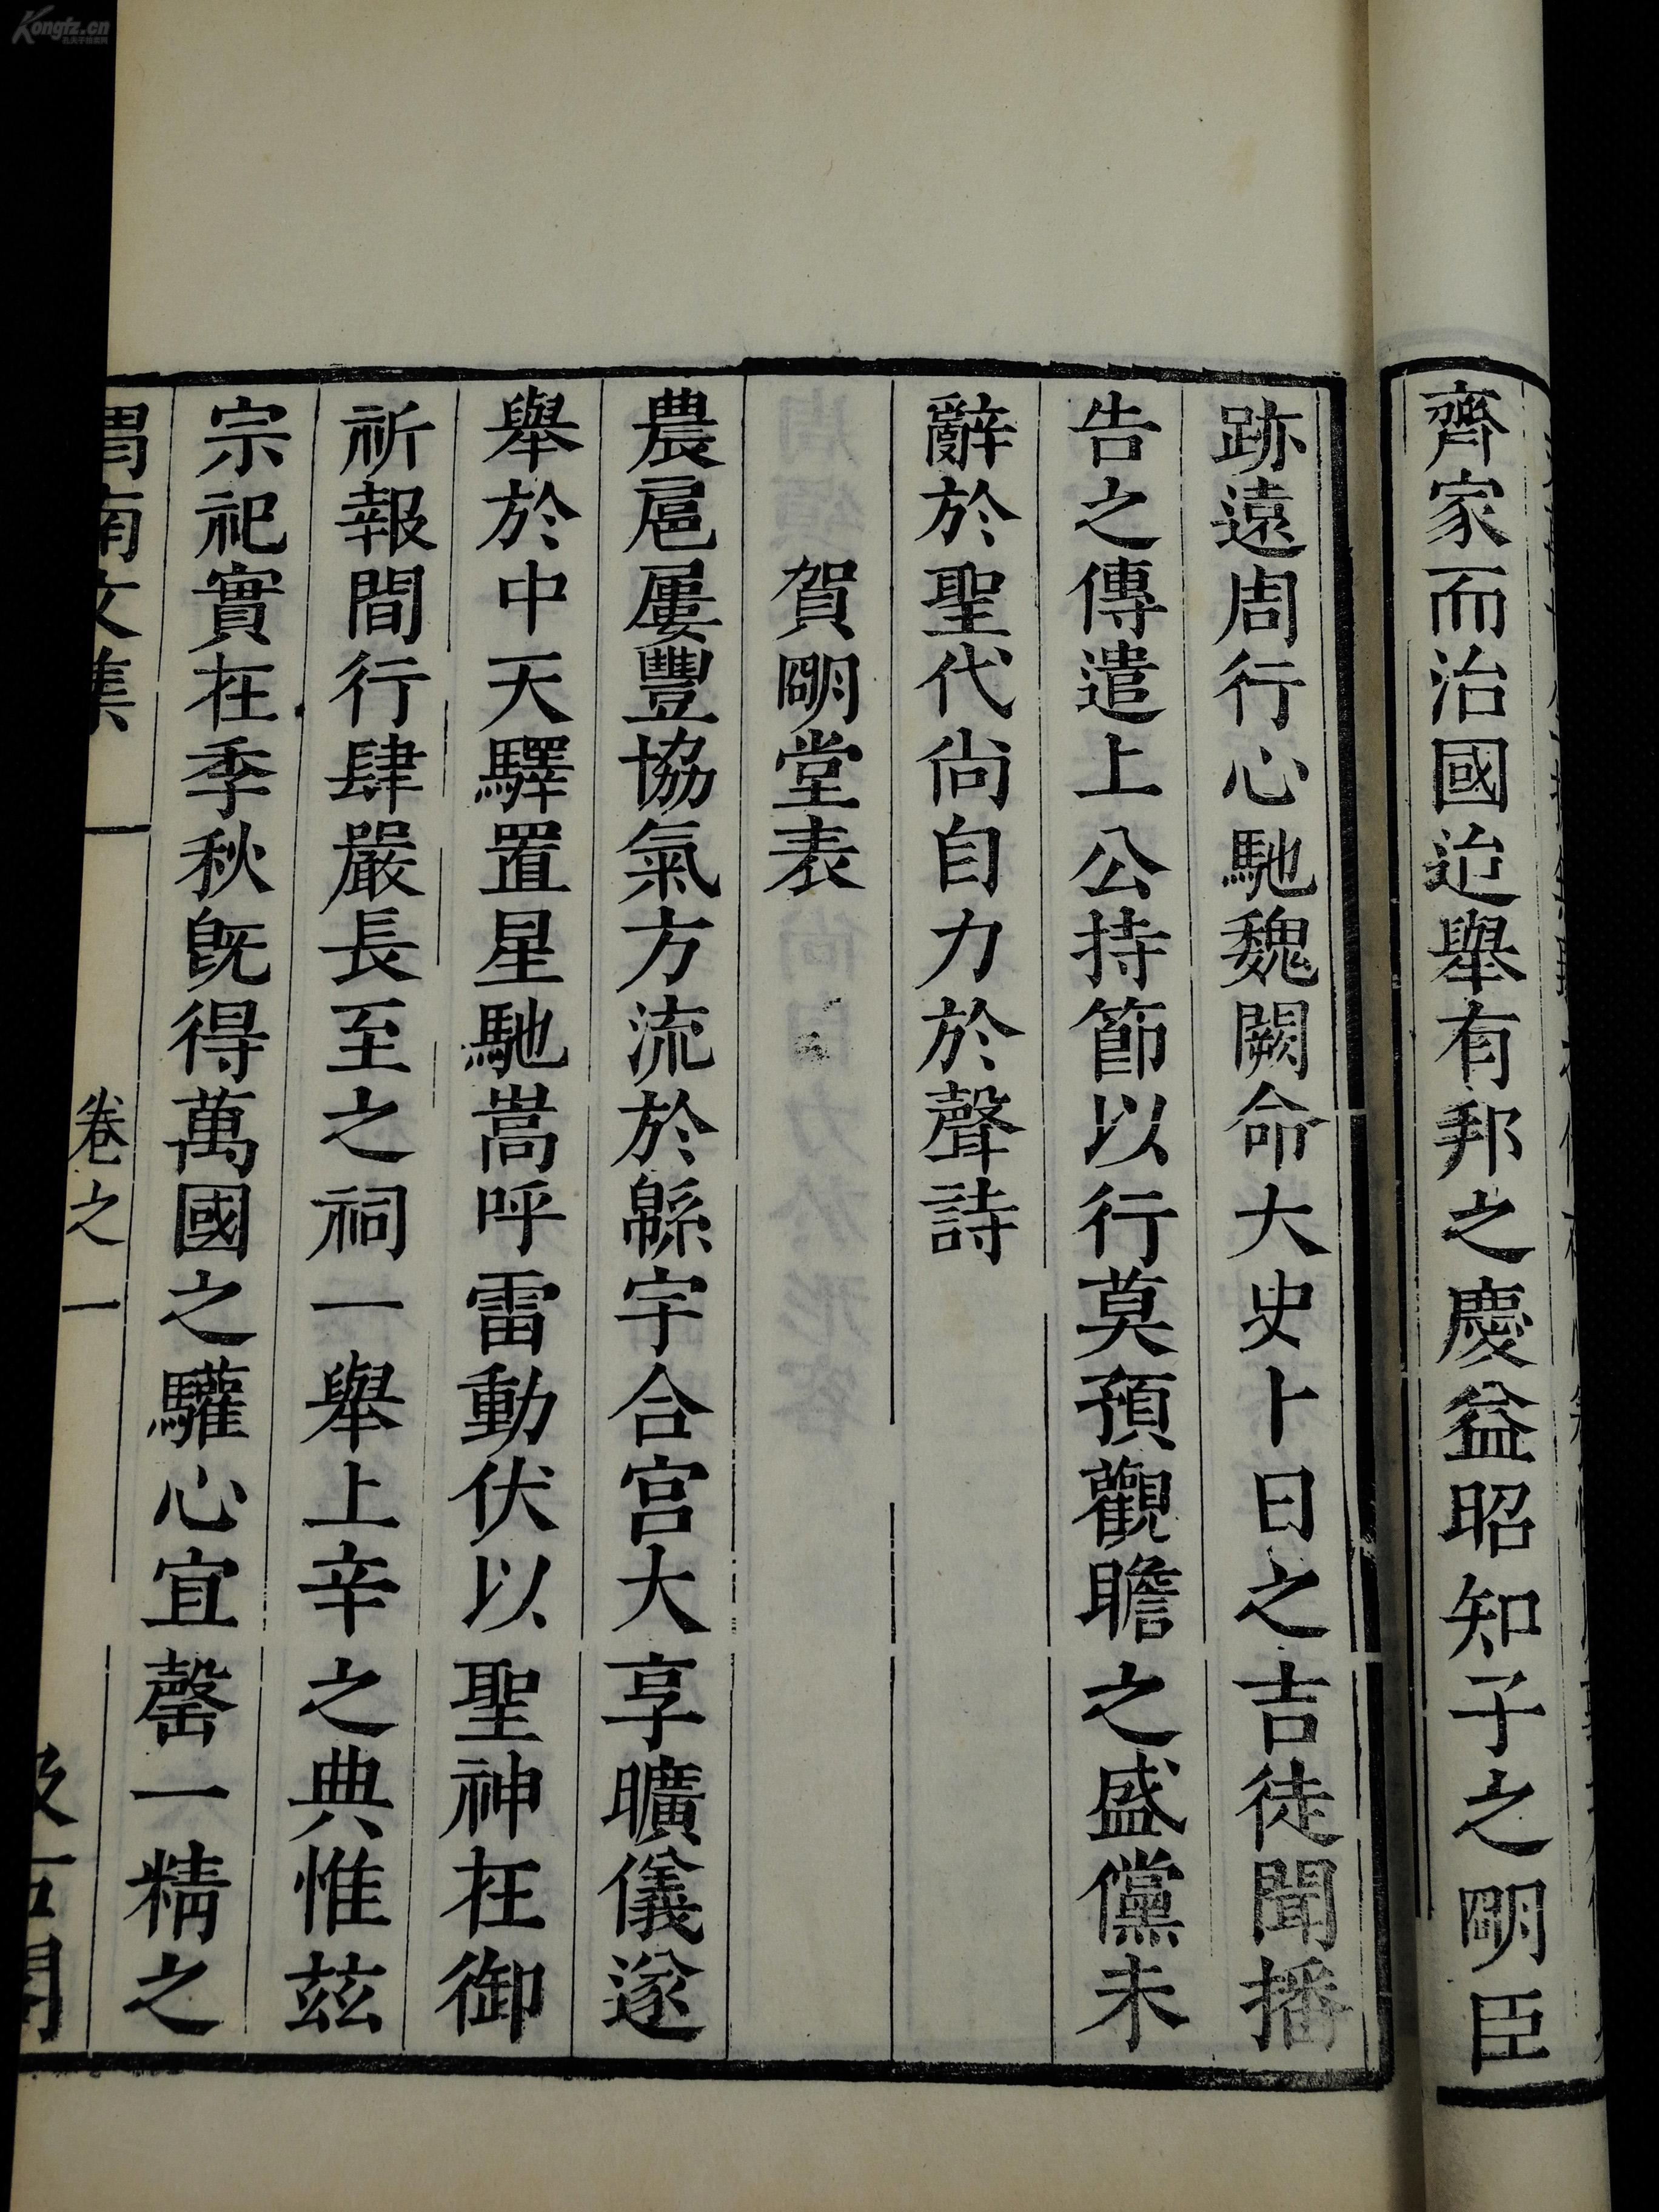 齊家而治國迨舉有邦之慶益昭知子之朙臣
跡遠周行心馳魏闕命大史卜日之吉徒聞播
告之傳遣上公持節以行莫預觀瞻之盛儻未
辭於聖代尙自力於聲詩
賀朙堂表
農扈屢豐協氣方流於緜宇合宮大享曠儀遂
舉於中天驛置星馳嵩呼雷動伏以聖神在御
祈報間行肆嚴長至之祠一舉上辛之典惟茲
宗祀實在季秋旣得萬國之驩心宜罄一精之
渭南文集 卷之一 汲古閣
Kongfz.cn